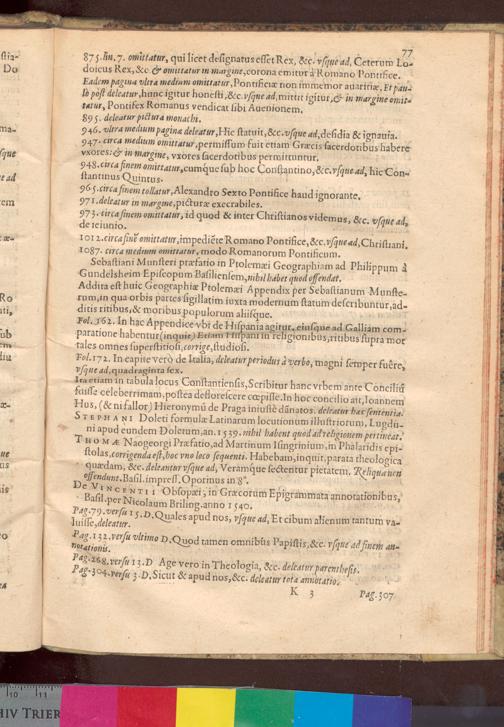 77
875. lin. 7. omittatur, qui licet designatus esset Rex, &c. vsque ad, Ceterum Lo-
doicus Rex, &c. & omittatur in margine, corona emitur à Romano Pontifice.
Eadem pagina vltra medium omittatur, Pontificiæ non immemor auaritiæ. Et pau-
lò pòst deleatur, hunc igitur honesti, &c. vsque ad, mittit igitur, & in margine omit-
tatur, Pontifex Romanus vendicat sibi Auenionem.
895. deleatur pictura monachi.
946. vltra medium pagina deleatur, Hic statuit, &c. vsque ad, desidia & ignauia.
947. circa medium omittatur, permissum fuit etiam Græcis sacerdotibus habere
vxores: & in margine, vxores sacerdotibus permittuntur.
948. circa finem omittatur, cumque sub hoc Constantino, &c. vsque ad, hic Con-
stantinus Quintus.
965. circa finem tollatur, Alexandro Sexto Pontifice haud ignorante.
971. deleatur in margine, picturæ execrabiles.
973. circa finem omittatur, id quod & inter Christianos videmus, &c. vsque ad,
de ieiunio.
1012. circa finē omittatur, impediēte Romano Pontifice, &c. vsque ad, Christiani.
1087. circa medium omittatur, modo Romanorum Pontificum.
Sebastiani Munsteri præfatio in Ptolemæi Geographiam ad Philippum à
Gundelsheim Episcopum Basiliensem, nihil habet quod offendat.
Addita est huic Geographiæ Ptolemæi Appendix per Sebastianum Munste-
rum, in qua orbis partes sigillatim iuxta modernum statum describuntur, ad-
ditis ritibus, & moribus populorum aliisque.
Fol. 162. In hac Appendice vbi de Hispania agitur, eiusque ad Galliam com-
paratione habentur (inquit) Etiam Hispani in religionibus, ritibus supra mor
tales omnes superstitiosi, corrige, studiosi.
Fol. 172. In capite verò de Italia, deleatur periodus à verbo, magni semper fuêre,
vsque ad, quadraginta sex.
Ita etiam in tabula locus Constantiensis, Scribitur hanc vrbem ante Conciliū
fuisse celeberrimam, postea deflorescere cœpisse. In hoc concilio ait, Ioannem
Hus, (& ni fallor) Hieronymū de Praga iniustè dānatos. deleatur hæc sententia.
STEPHANI Doleti formulæ Latinarum locutionum illustriorum, Lugdu-
ni apud eundem Doletum, an. 1539. nihil habent quod ad religionem pertineat.
THOMÆ Naogeorgi Præfatio, ad Martinum Isingrinium, in Phalaridis epi-
stolas, corrigenda est, hoc vno loco sequenti. Habebam, inquit, parata theologica
quædam, &c. deleantur vsque ad, Veramque sectentur pietatem. Reliqua non
offendunt. Basil. impress. Oporinus in 8°.
De VINCENTII Obsopæi, in Græcorum Epigrammata annotationibus,
Basil. per Nicolaum Briling. anno 1540.
Pag. 79. versu 15. D. Quales apud nos, vsque ad, Et cibum alienum tantum va-
luisse, deleatur.
Pag. 132. versu vltimo D. Quod tamen omnibus Papistis, &c. vsque ad finem an-
notationis.
Pag. 268. versu 13. D Age vero in Theologia, &c. deleatur parenthesis.
Pag. 304. versu 3. D. Sicut & apud nos, &c. deleatur tota annotatio.
K 3 Pag. 307
10 11
HIV TRIER